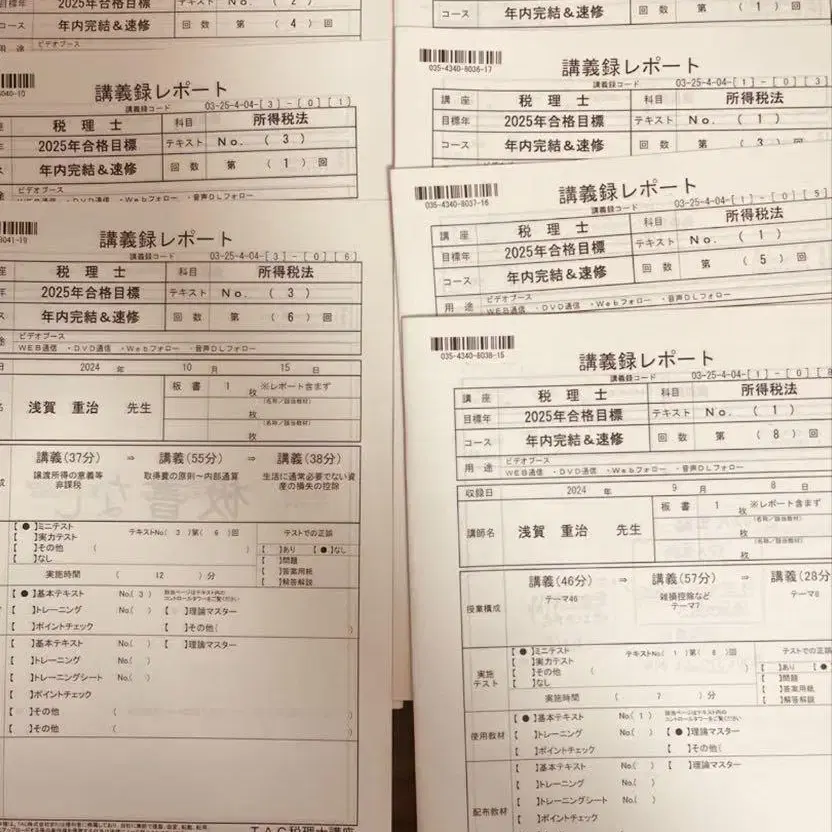 2025年合格目標 テキスト No. ( 2 )
コース 年内完結&速修 回数 第 ( 4 ) 回
ビデオブース
講義録レポート
講義録コード 03-25-4-04-[ 3 ]-[ 0 ][ 1 ]
税理士 科目 所得税法
2025年合格目標 テキスト No. ( 3 )
年内完結&速修 回数 第 ( 1 ) 回
ビデオブース
WEB通信 ・DVD通信 ・Webフォロー ・音声DLフォロー
講義録レポート
講義録コード 03-25-4-04-[ 3 ]-[ 0 ][ 6 ]
税理士 科目 所得税法
2025年合格目標 テキスト No. ( 3 )
年内完結&速修 回数 第 ( 6 ) 回
ビデオブース
WEB通信 ・DVD通信 ・Webフォロー ・音声DLフォロー
2024 年 10 月 15 日
浅賀 重治 先生 板書 1 枚 ※レポート含まず
枚 (名称/該当教材)
枚 (名称/該当教材)
講義(37分) ⇒ 講義(55分) ⇒ 講義(38分)
譲渡所得の意義等 非課税
取得費の原則~内部通算
生活に通常必要でない資産の損失の控除
【 ● 】ミニテスト テキストNo( 3 )第( 6 )回 テストでの正誤
【 】実力テスト 【 】あり 【 ● 】なし
【 】その他 ( ) 【 】問題
【 】なし 【 】答案用紙
実施時間 ( 12 ) 分 【 】解答解説
【 ● 】基本テキスト No.( 3 ) 該当ページはテキスト内のコントロールタワーをご覧ください
【 】トレーニング No.( ) 【 】理論マスター
【 】ポイントチェック 【 】その他( )
【 】基本テキスト No.( ) 【 】理論マスター
【 】トレーニング No.( )
【 】トレーニングシート No.( )
【 】ポイントチェック
【 】その他 ( )
【 】その他 ( )
TAC税理士講座
コース 年内完結&速修 回数 第 ( 1 ) 回
035-4340-8036-17
講義録レポート
講義録コード 03-25-4-04-[ 1 ]-[ 0 ][ 3 ]
講座 税理士 科目 所得税法
目標年 2025年合格目標 テキスト No. ( 1 )
コース 年内完結&速修 回数 第 ( 3 ) 回
035-4340-8037-16
講義録レポート
講義録コード 03-25-4-04-[ 1 ]-[ 0 ][ 5 ]
講座 税理士 科目 所得税法
目標年 2025年合格目標 テキスト No. ( 1 )
コース 年内完結&速修 回数 第 ( 5 ) 回
用途 ビデオブース
WEB通信 ・DVD通信 ・Webフォロー ・音声DLフォロー
035-4340-8038-15
講義録レポート
講義録コード 03-25-4-04-[ 1 ]-[ 0 ][ 8
講座 税理士 科目 所得税法
目標年 2025年合格目標 テキスト No. ( 1 )
コース 年内完結&速修 回数 第 ( 8 ) 回
用途 ビデオブース
WEB通信 ・DVD通信 ・Webフォロー ・音声DLフォロー
収録日 2024 年 9 月 8 日
講師名 浅賀 重治 先生 板書 1 枚 ※レポート含まず
枚 (名称/該当教材)
枚 (名称/該当教材)
授業構成 講義(46分) ⇒ 講義(57分) ⇒ 講義(28分
テーマ46
雑損控除など テーマ7
実施テスト 【 ● 】ミニテスト テキストNo( 1 )第( 8 )回 テストでの正誤
【 】実力テスト 【 】あり 【 ●
【 】その他 ( 【 】問題
【 】なし 【 】答案用紙
実施時間 ( 7 ) 分 【 】解答解説
使用教材 【 ● 】基本テキスト No.( 1 ) 該当ページはテキスト内のコントロールタワーをご覧ください
【 】トレーニング No.( ) 【 ● 】理論マスター
【 】ポイントチェック 【 】その他(
配布教材 【 】基本テキスト No.( ) 【 】理論マスター
【 】トレーニング No.( )
【 】トレーニングシート No.( )
【 】ポイントチェック